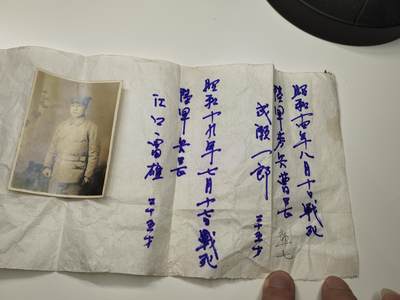 昭和十四年八月十日戦死
陸軍歩兵曹長
武 一郎 三十五才
昭和十九年七月十七日戦死
陸軍兵長
江口 雄 三十五才